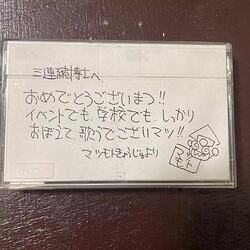 三連続博士へ、
おめでとうございまつ!!
イベントでも、学校でも、しっかり
おぼえて、歌うでございマツ!!
マツモトきょうじゅより
マモト